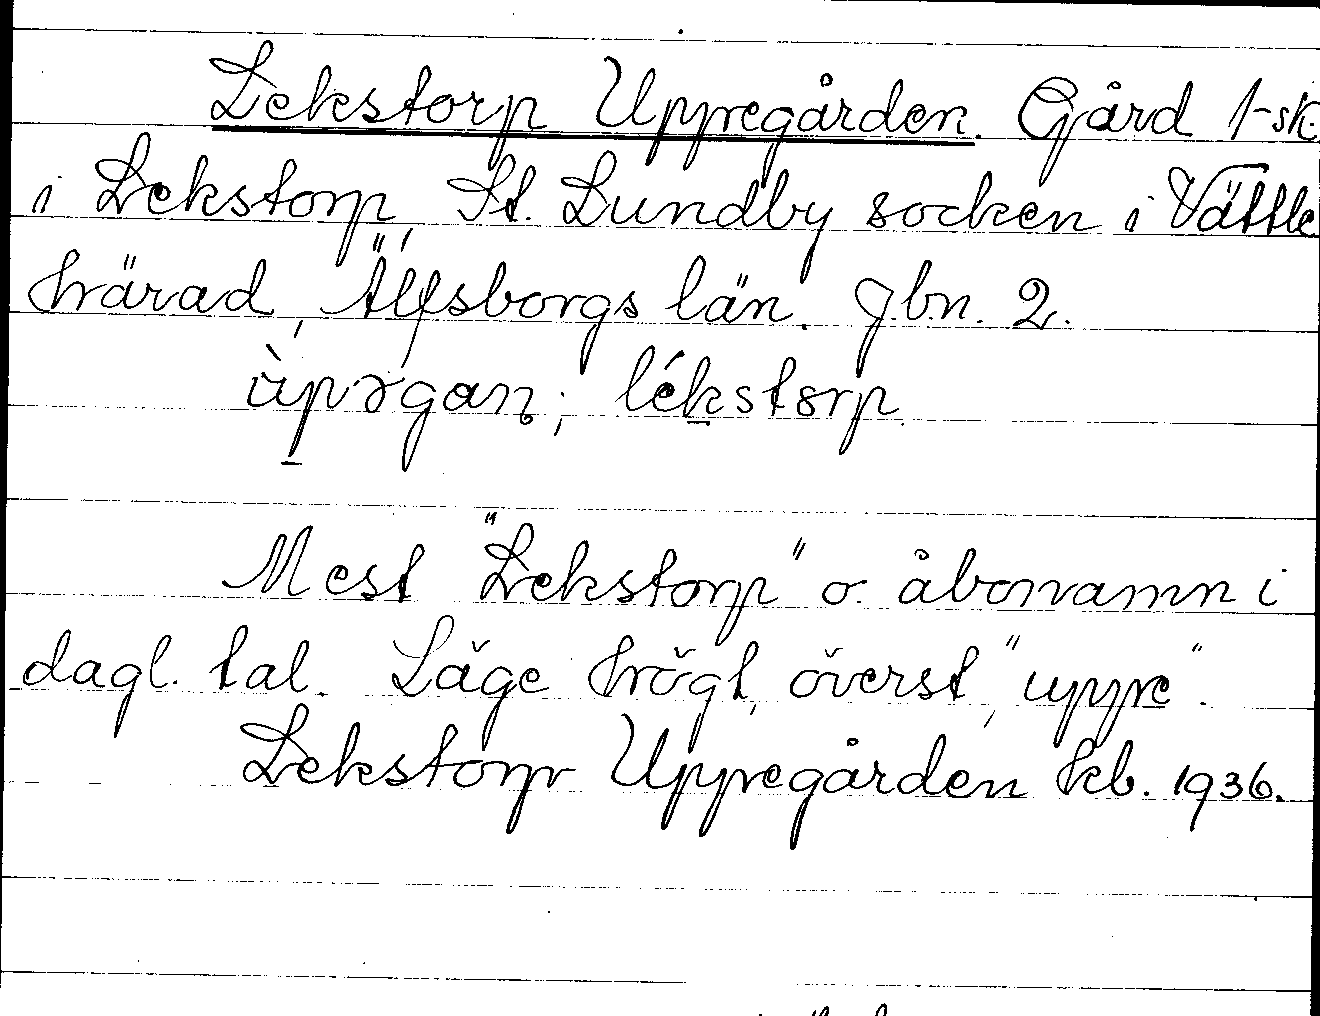 Lekstorp Uppegården. Gård 1-sk.
i Lekstorp, St. Lundby socken i Vättle
härad, Älfsborgs län. Jbn. 2.
ùpəgan; lékstorp.
Mest "Lekstorp" o. åbonamn i
dagl. tal. Läge högt, överst, "uppe".
Lekstorp Uppegården kb. 1936.